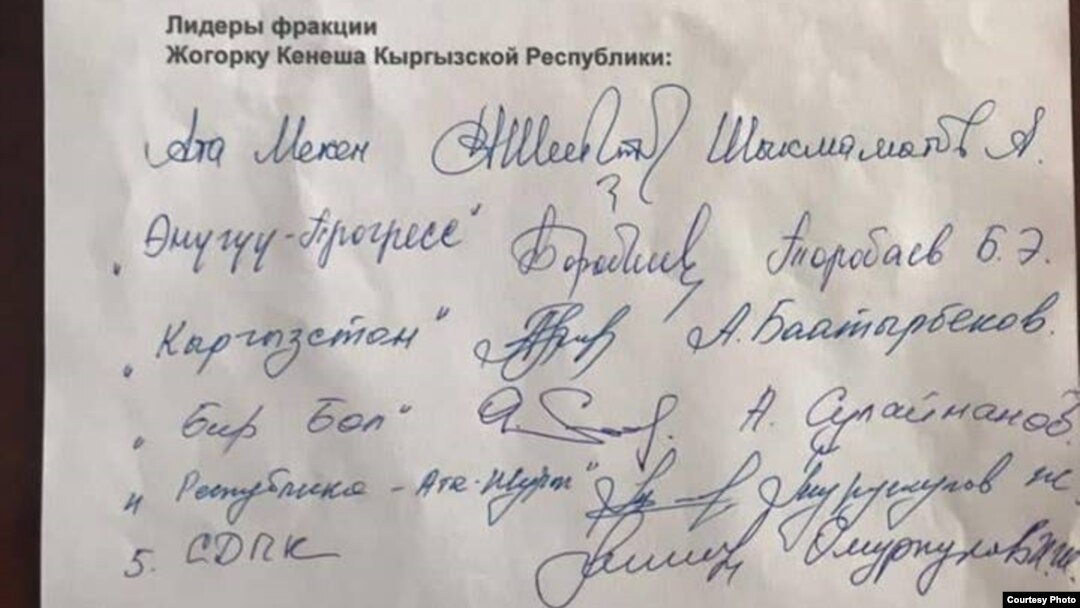 Лидеры фракции
Жогорку Кенеша Кыргызской Республики:
Ата Мекен Шыкмаматов А.
„Өнүгүү-Прогресс“ Торобаев Б.Э.
„Кыргызстан“ А.Баатырбеков.
„Бир Бол“ А. Сулайманов.
„Республика - Ата-Журт“
5. СДПК Омуркулов И.Ш.
Courtesy Photo